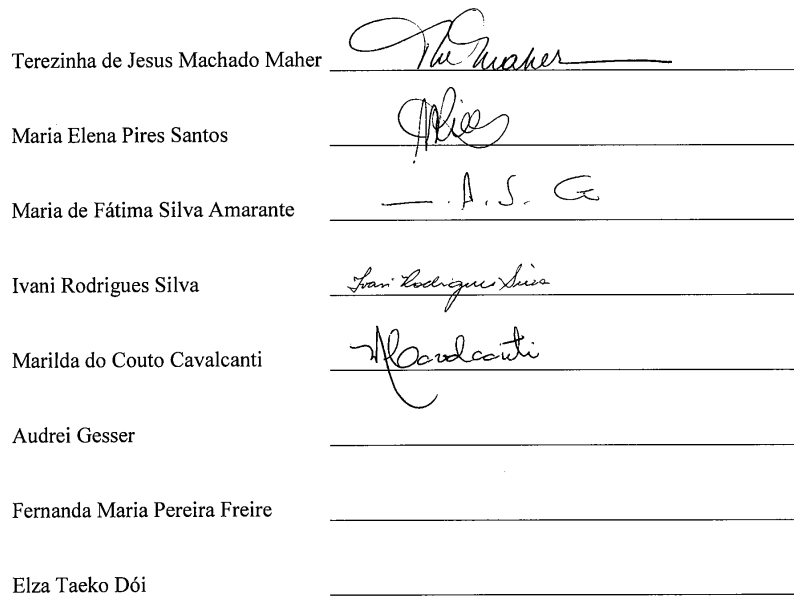 Terezinha de Jesus Machado Maher Maher
Maria Elena Pires Santos
Maria de Fátima Silva Amarante A. S. G
Ivani Rodrigues Silva Ivani Rodrigues Silva
Marilda do Couto Cavalcanti MCavalcanti
Audrei Gesser
Fernanda Maria Pereira Freire
Elza Taeko Dói